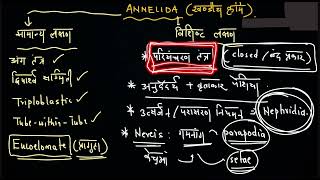 ANNELIDA (खण्डीय कृमि)
सामान्य लक्षण
विशिष्ट लक्षण
अंग तंत्र ✓
* परिसंचरण तंत्र (closed / बंद प्रकार)
द्विपार्श्व सममिति ✓
* अनुदैर्ध्य + वृत्ताकार पेशियाँ
Triploblastic ✓
* उत्सर्जन + परासरण नियमन → Nephridia
Tube-within-Tube ✓
* Nereis: → parapodia
Eucoelomate
केंचुआ → setae